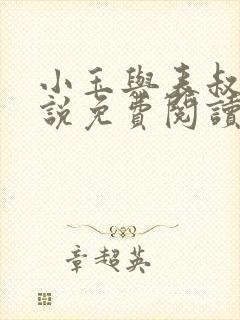 小玉與表叔
說免費閱讀
章超英